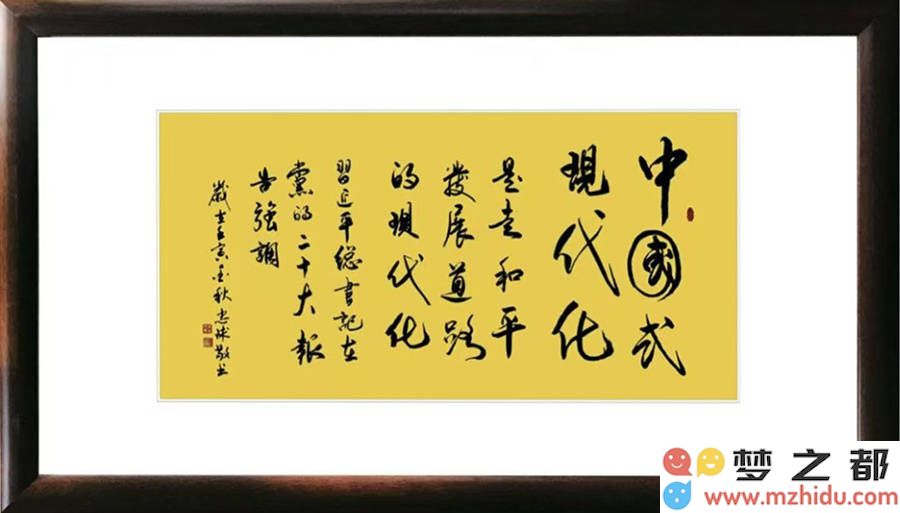 中國式
現代化
是走和平
發展道路
的現代化
習近平總書記在
黨的二十大報
告強調
歲在壬寅秋敬书
梦之都
www.mzhidu.com